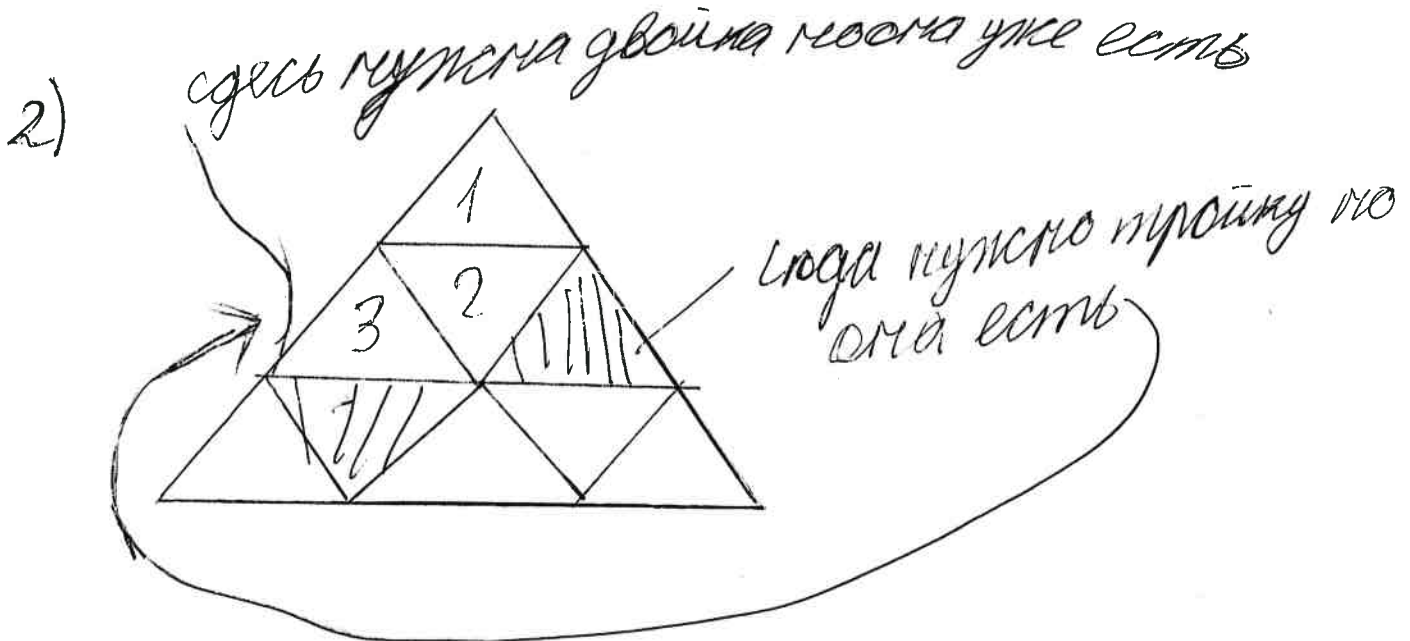 сдесь нужна двойка но она уже есть
2)
1
2
3
сюда нужно тройку но
она есть